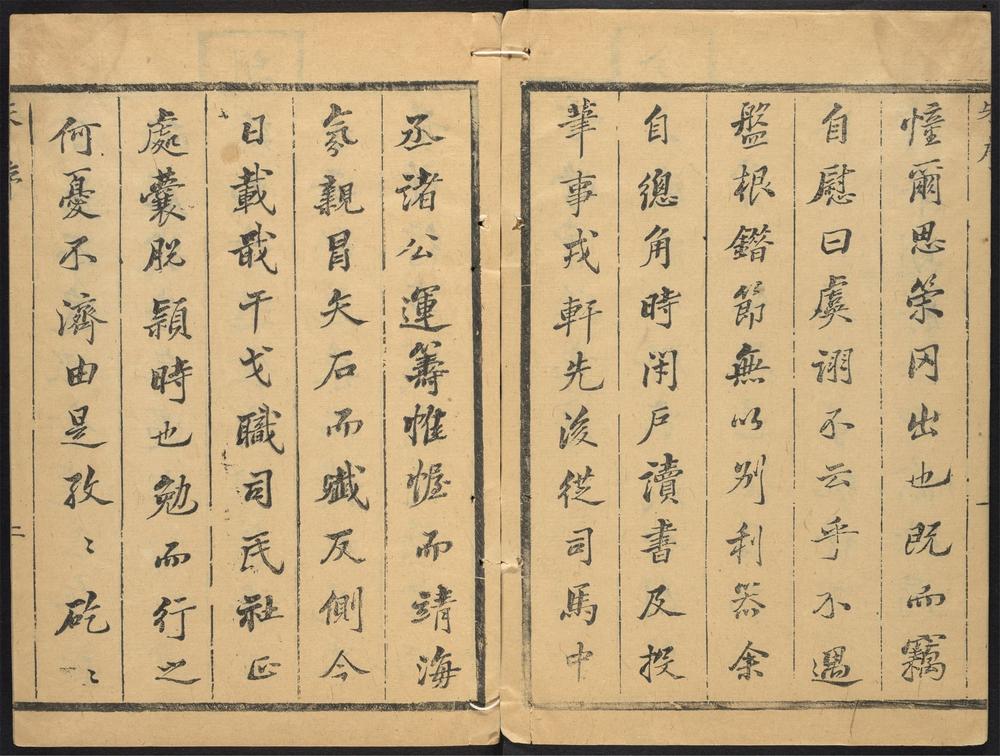 憧爾思筞罔出也既而竊
自慰曰虞詡不云乎不遇
盤根錯節無以别利器余
自總角時闭户讀書及投
筆事戎軒先後從司馬中
丞諸公運籌惟幄而靖海
氛親冒矢石而殱反側今
日載戢干戈職司民社正
處囊脱穎時也勉而行之
何憂不濟由是孜〻矻〻